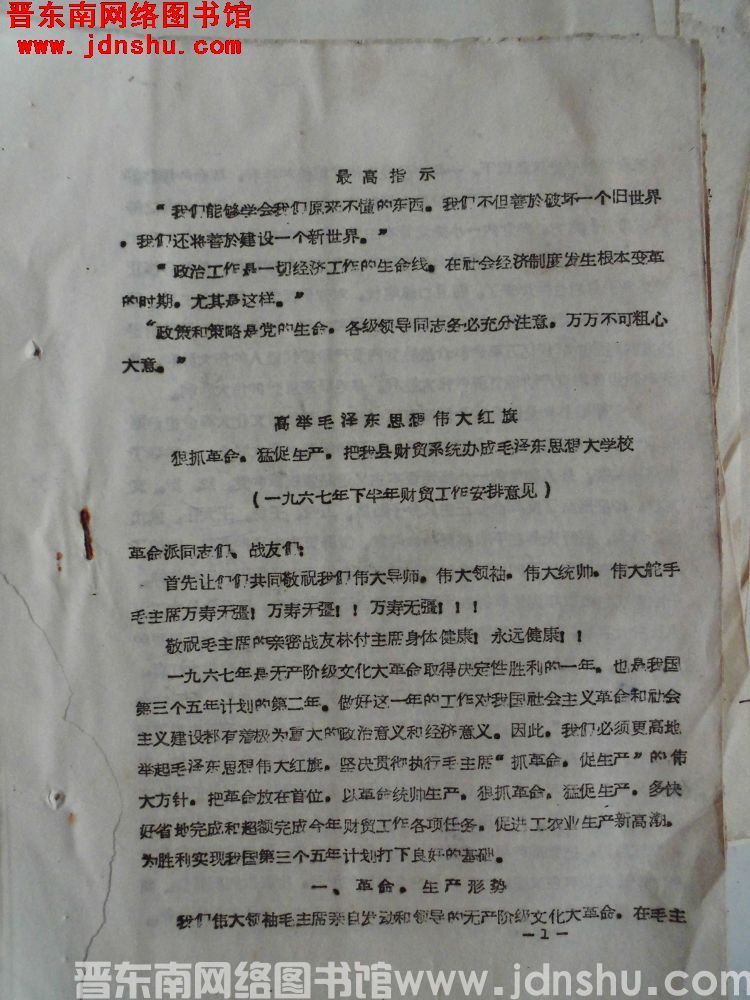 晋东南网络图书馆
www.jdnshu.com
最高指示
“我们能够学会我们原来不懂的东西。我们不但善於破坏一个旧世界
。我们还将善於建设一个新世界。”
“政治工作是一切经济工作的生命线。在社会经济制度发生根本变革
的时期。尤其是这样。”
“政策和策略是党的生命。各级领导同志务必充分注意。万万不可粗心
大意。”
高举毛泽东思想伟大红旗
狠抓革命。猛促生产。把我县财贸系统办成毛泽东思想大学校
(一九六七年下半年财贸工作安排意见)
革命派同志们、战友们:
首先让们们共同敬祝我们伟大导师。伟大领袖。伟大统帅。伟大舵手
毛主席万寿无疆!万寿无疆!!万寿无疆!!!
敬祝毛主席的亲密战友林付主席身体健康!永远健康!!
一九六七年是无产阶级文化大革命取得决定性胜利的一年。也是我国
第三个五年计划的第二年。做好这一年的工作对我国社会主义革命和社会
主义建设都有着极为重大的政治意义和经济意义。因此。我们必须更高地
举起毛泽东思想伟大红旗。坚决贯彻执行毛主席“抓革命。促生产”的伟
大方针。把革命放在首位。以革命统帅生产。狠抓革命。猛促生产。多快
好省地完成和超额完成今年财贸工作各项任务。促进工农业生产新高潮。
为胜利实现我国第三个五年计划打下良好的基础。
一、革命。生产形势
我们伟大领袖毛主席亲自发动和领导的无产阶级文化大革命。在毛主
—1—
晋东南网络图书馆www.jdnshu.com